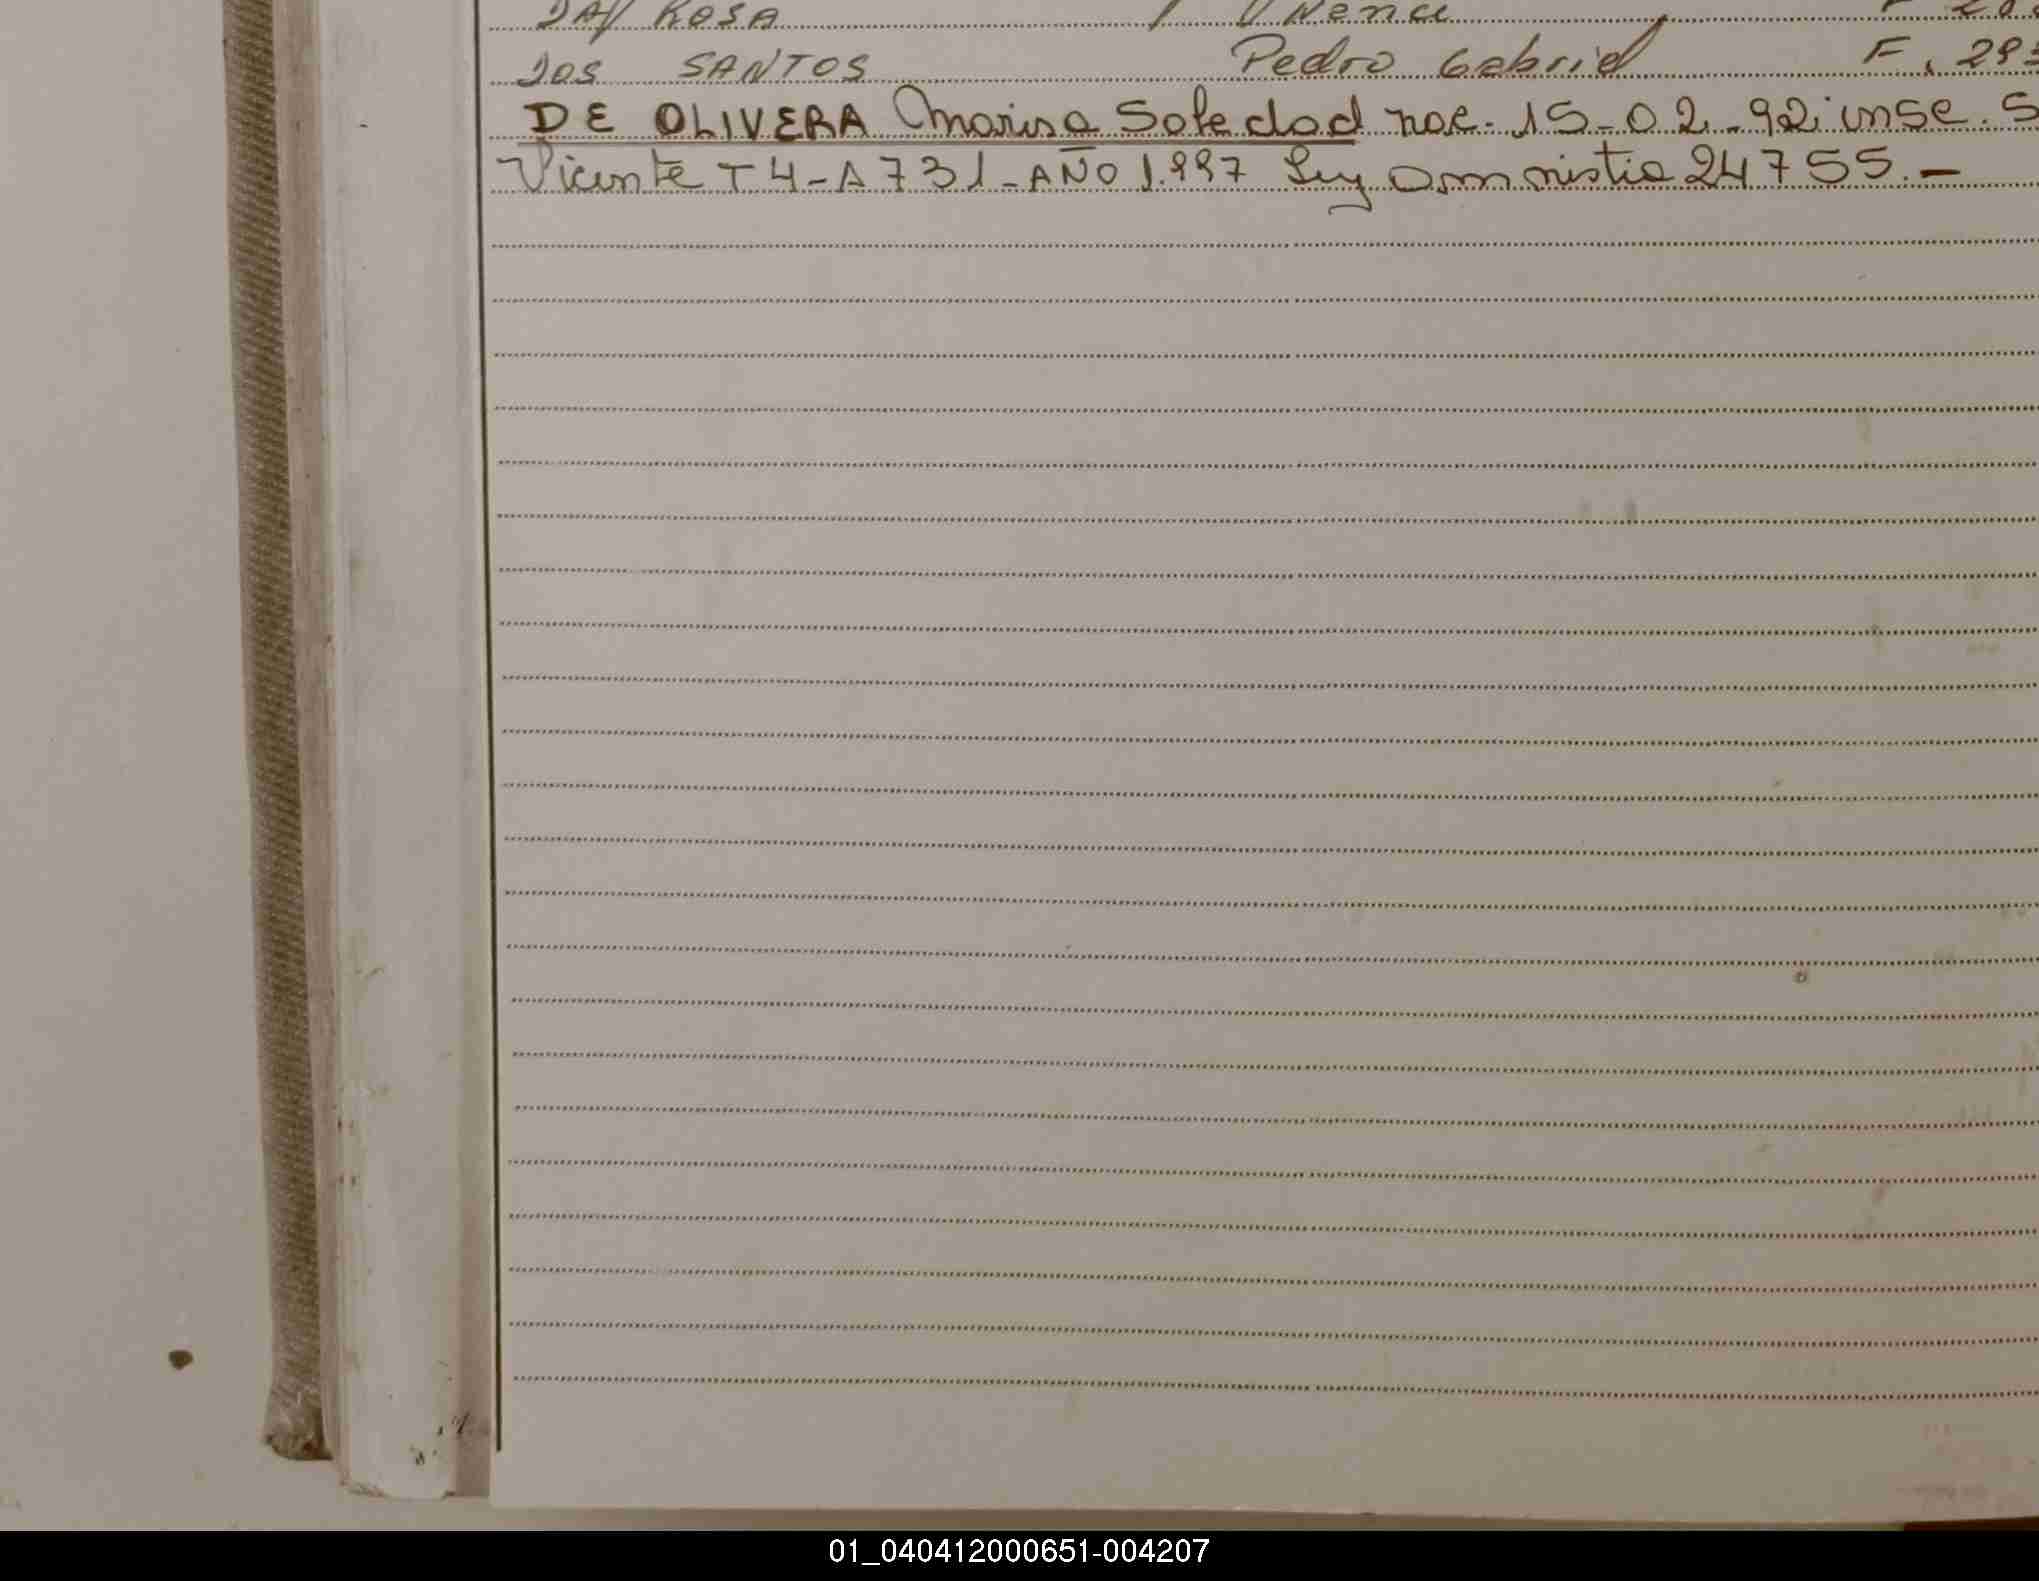 DA ROSA
DOS SANTOS Pedro Gabriel F. 29
DE OLIVERA Marisa Soledad nac. 15-02-92 insc. S
Vicente T4-A731-AÑO 1.997 Ley amnistia 24755.-
01_040412000651-004207